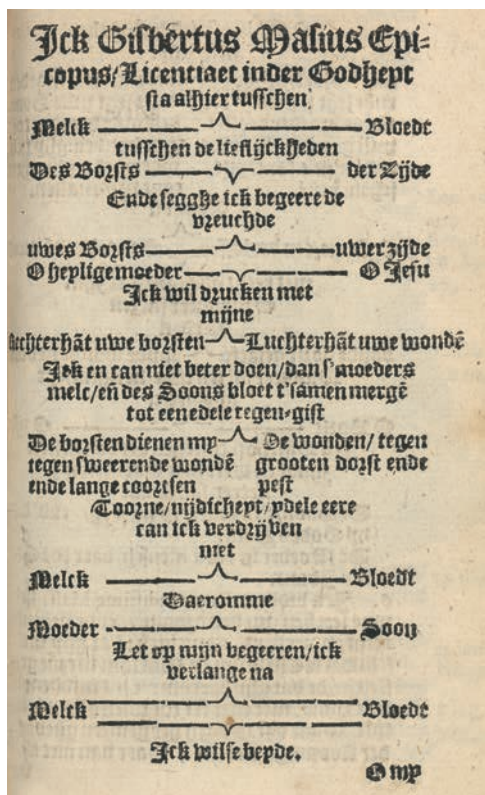 Ick Gisbertus Masius Epi-
copus/Licentiaet inder Godheyt
sta alhier tusschen
Melck Bloedt
tusschen de lieflijckheden
Des Borsts der Zijde
Ende segghe ick begeere de
vreuchde
uwes Borsts uwer zijde
O heylige moeder O Jesu
Ick wil drucken met
mijne
Rechterhãt uwe borsten Luchterhãt uwe wondẽ
Ick en can niet beter doen/dan s'moeders
melc/eñ des Soons bloet t'samen mergẽ
tot een edele tegen-gift
De borsten dienen my De wonden/ tegen
tegen sweerende wondẽ grooten dorst ende
ende lange coortsen pest
Toorne/nijdicheyt/ydele eere
can ick verdrijven
met
Melck Bloedt
Daeromme
Moeder Soon
Let op mijn begeeren/ick
verlange na
Melck Bloedt
Ick wilse beyde.
O my